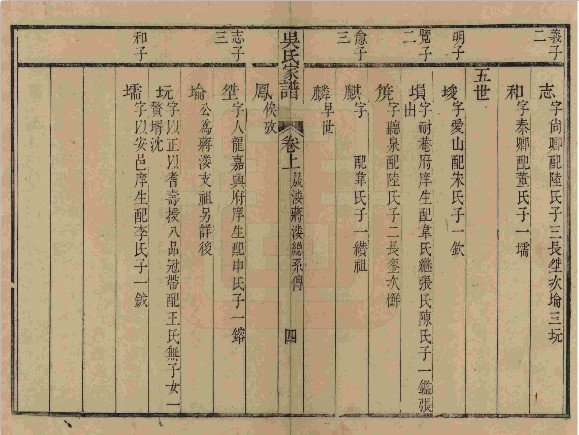 義子二
志 字尚卿配陸氏子三長𡊮次埨三玩
和 字泰卿配董氏子一壖
五世
明子
埈 字愛山配朱氏子一欽
覽子二
塤 字耐菴府庠生配韋氏繼張氏陳氏子一鑑張出
垙 字聽泉配陸氏子二長鎏次
愈子三
麒 字 配韋氏子一纘祖
麟 早世
鳳 俟攷
吳氏家譜
卷上
晟淩蔣淩總系傳
四
志子三
字人龍嘉興府庠生配申氏子一鎔
埨 公為蔣淩支祖另詳後
玩 字以正以耆壽授八品冠帶配王氏無子女一贅壻沈
和子
壖 字以安邑庠生配李氏子一鉞